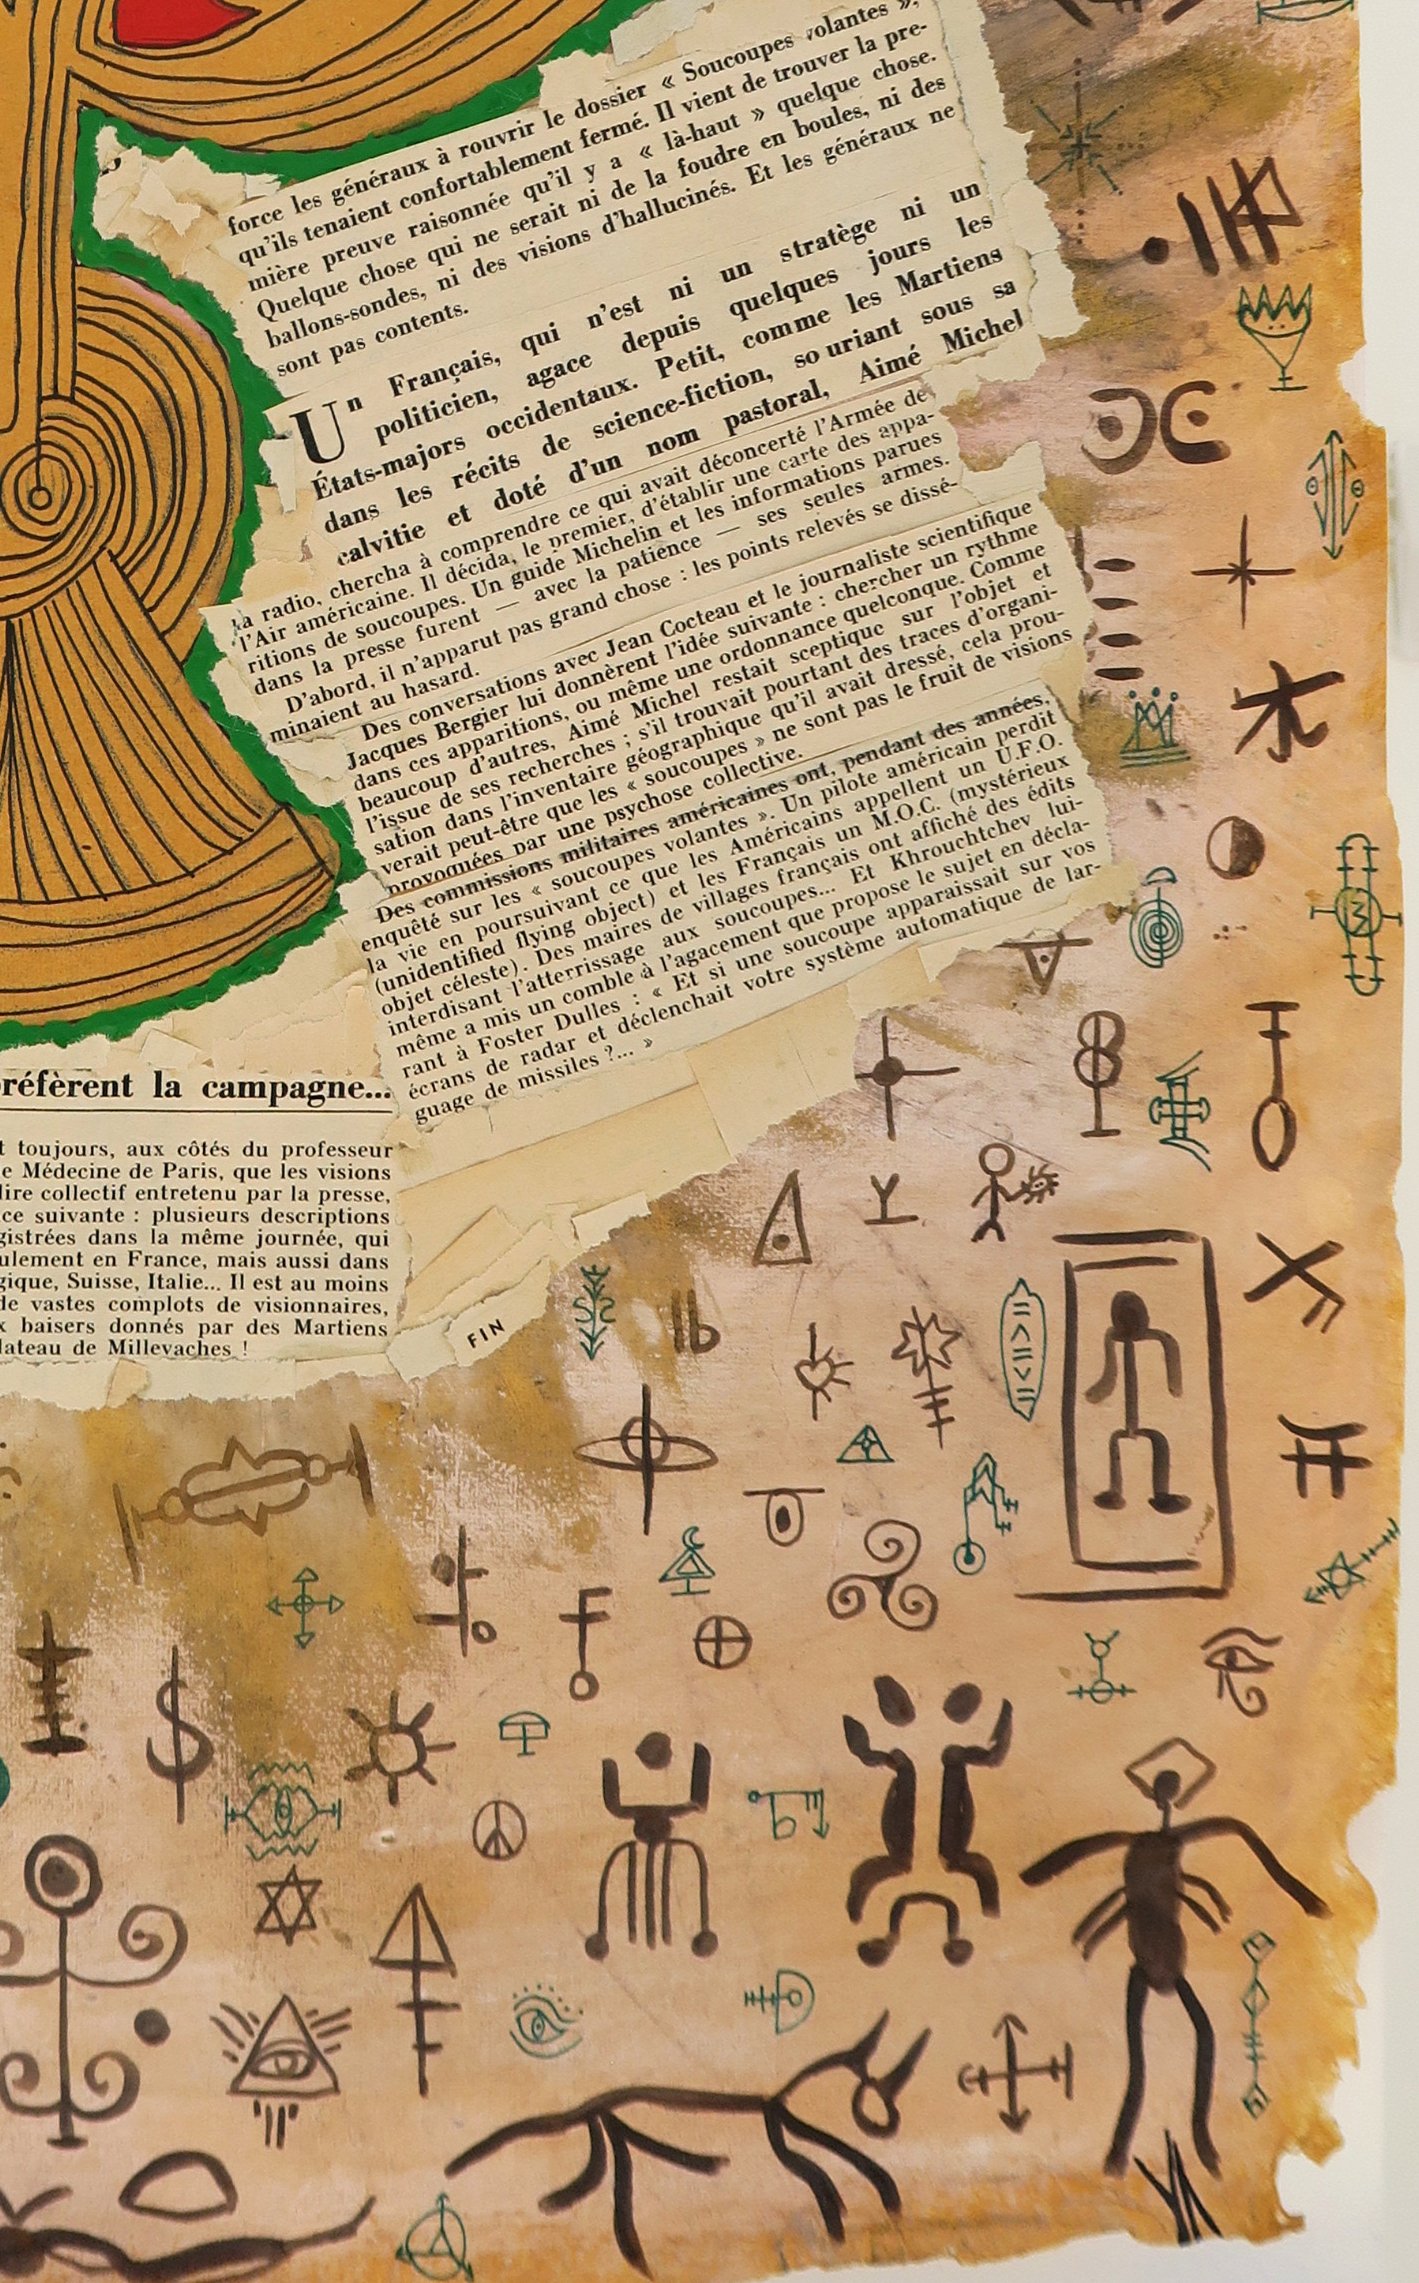 force les généraux à rouvrir le dossier « Soucoupes volantes »,
qu'ils tenaient confortablement fermé. Il vient de trouver la pre-
mière preuve raisonnée qu'il y a « là-haut » quelque chose.
Quelque chose qui ne serait ni de la foudre en boules, ni des
ballons-sondes, ni des visions d'hallucinés. Et les généraux ne
sont pas contents.
Un Français, qui n'est ni un stratège ni un
politicien, agace depuis quelques jours les
États-majors occidentaux. Petit, comme les Martiens
dans les récits de science-fiction, souriant sous sa
calvitie et doté d'un nom pastoral, Aimé Michel
la radio, chercha à comprendre ce qui avait déconcerté l'Armée de
l'Air américaine. Il décida, le premier, d'établir une carte des appa-
ritions de soucoupes. Un guide Michelin et les informations parues
dans la presse furent — avec la patience — ses seules armes.
D'abord, il n'apparut pas grand chose : les points relevés se dissé-
minaient au hasard.
Des conversations avec Jean Cocteau et le journaliste scientifique
Jacques Bergier lui donnèrent l'idée suivante : chercher un rythme
dans ces apparitions, ou même une ordonnance quelconque. Comme
beaucoup d'autres, Aimé Michel restait sceptique sur l'objet et
l'issue de ses recherches ; s'il trouvait pourtant des traces d'organi-
sation dans l'inventaire géographique qu'il avait dressé, cela prou-
verait peut-être que les « soucoupes » ne sont pas le fruit de visions
provoquées par une psychose collective.
Des commissions militaires américaines ont, pendant des années,
enquêté sur les « soucoupes volantes ». Un pilote américain perdit
la vie en poursuivant ce que les Américains appellent un U.F.O.
(unidentified flying object) et les Français un M.O.C. (mystérieux
objet céleste). Des maires de villages français ont affiché des édits
interdisant l'atterrissage aux soucoupes... Et Khrouchtchev lui-
même a mis un comble à l'agacement que propose le sujet en décla-
rant à Foster Dulles : « Et si une soucoupe apparaissait sur vos
écrans de radar et déclenchait votre système automatique de lar-
guage de missiles ?... »
préfèrent la campagne...
t toujours, aux côtés du professeur
e Médecine de Paris, que les visions
lire collectif entretenu par la presse,
ce suivante : plusieurs descriptions
gistrées dans la même journée, qui
ulement en France, mais aussi dans
gique, Suisse, Italie... Il est au moins
de vastes complots de visionnaires,
x baisers donnés par des Martiens
lateau de Millevaches !
FIN